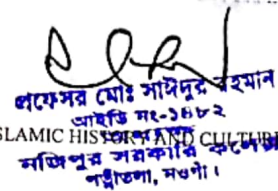 প্রফেসর মোঃ সাইদুর রহমান
আইডি নং-১৪৮২
ISLAMIC HISTORY AND CULTURE
নজিপুর সরকারি কলেজ
পত্নীতলা, নওগাঁ।